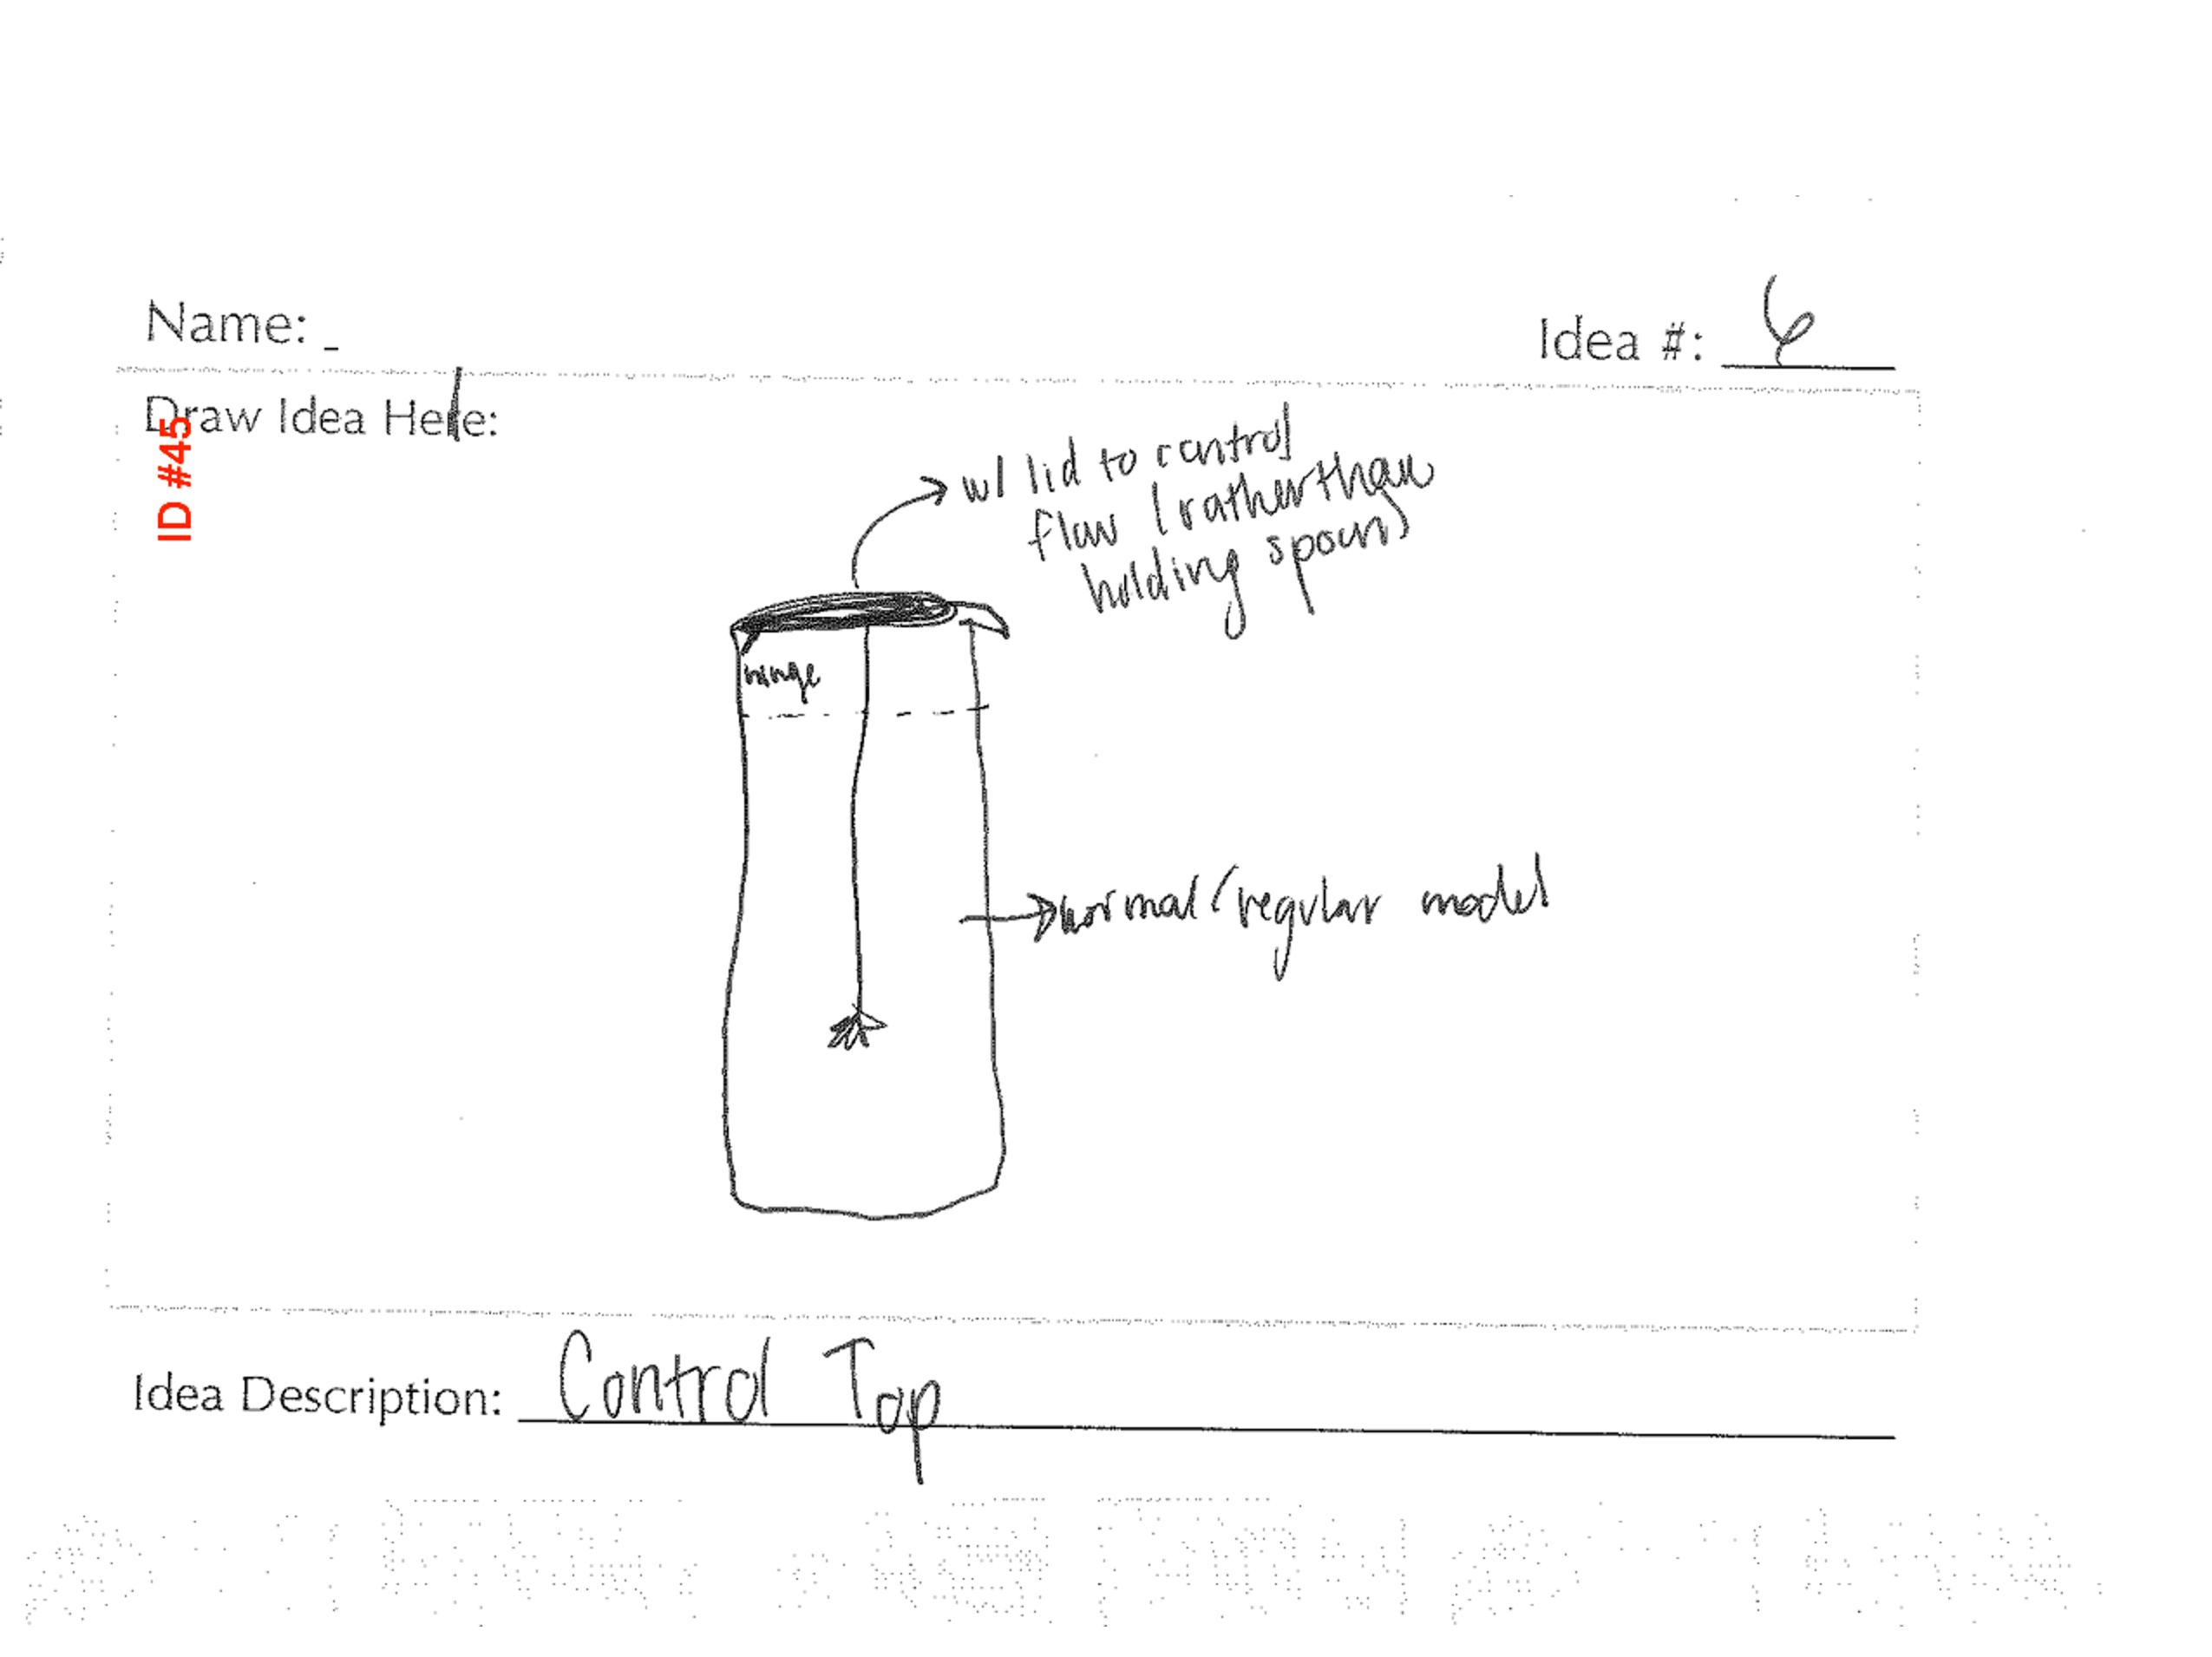 Name:
Idea #: 6
Draw Idea Here:
ID #45
w/ lid to control
flow (rather than
holding spoon)
hinge
normal/regular model
Idea Description: Control Top